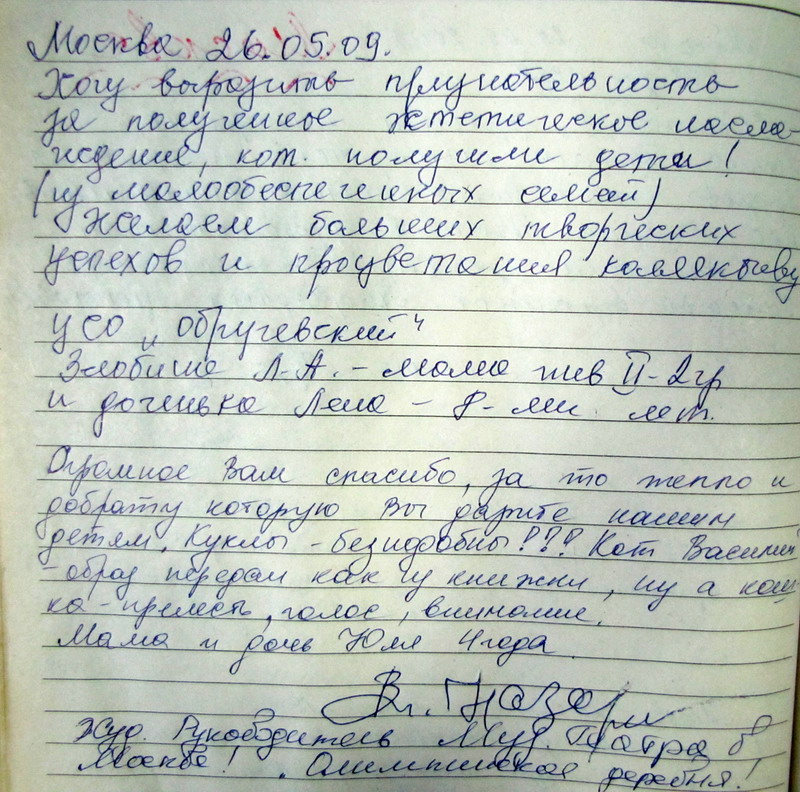 Москва 26.05.09.
Хочу выразить признательность
за полученное эстетическое насла-
ждение, кот. получили дети!
(из малообеспеченных семей)
Желаем больших творческих
успехов и процветания коллективу
ЦСО „Обручевский"
Злобина Л.А. – мама инв II-2гр
и доченька Лена – 8-ми лет.
Огромное Вам спасибо, за то тепло и
доброту которую Вы дарите нашим
детям. Куклы – безподобны!!! Кот Василий
– образ передан как из книжки, ну а кош-
ка – прелесть, голос, внимание.
Мама и дочь Юля 4 года
Вл. Назар
Худ. Руководитель Муз. Театра в
Москве! Олимпийская деревня!